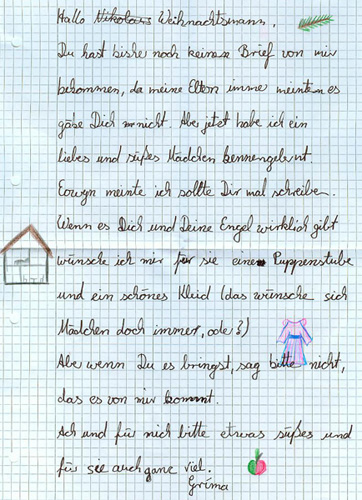 Hallo Nikolaus Weihnachtsmann,
Du hast bisher noch keinen Brief von mir
bekommen, da meine Eltern immer meinten es
gäbe Dich nicht. Aber jetzt habe ich ein
liebes und süßes Mädchen kennengelernt.
Eowyn meinte ich sollte Dir mal schreiben.
Wenn es Dich und Deine Engel wirklich gibt
wünsche ich mir für sie eine Puppenstube
und ein schönes Kleid (das wünsche sich
Mädchen doch immer, oder?)
Aber wenn Du es bringst, sag bitte nicht,
das es von mir kommt.
Ach und für mich bitte etwas süßes und
für sie auch ganz viel.
Gríma